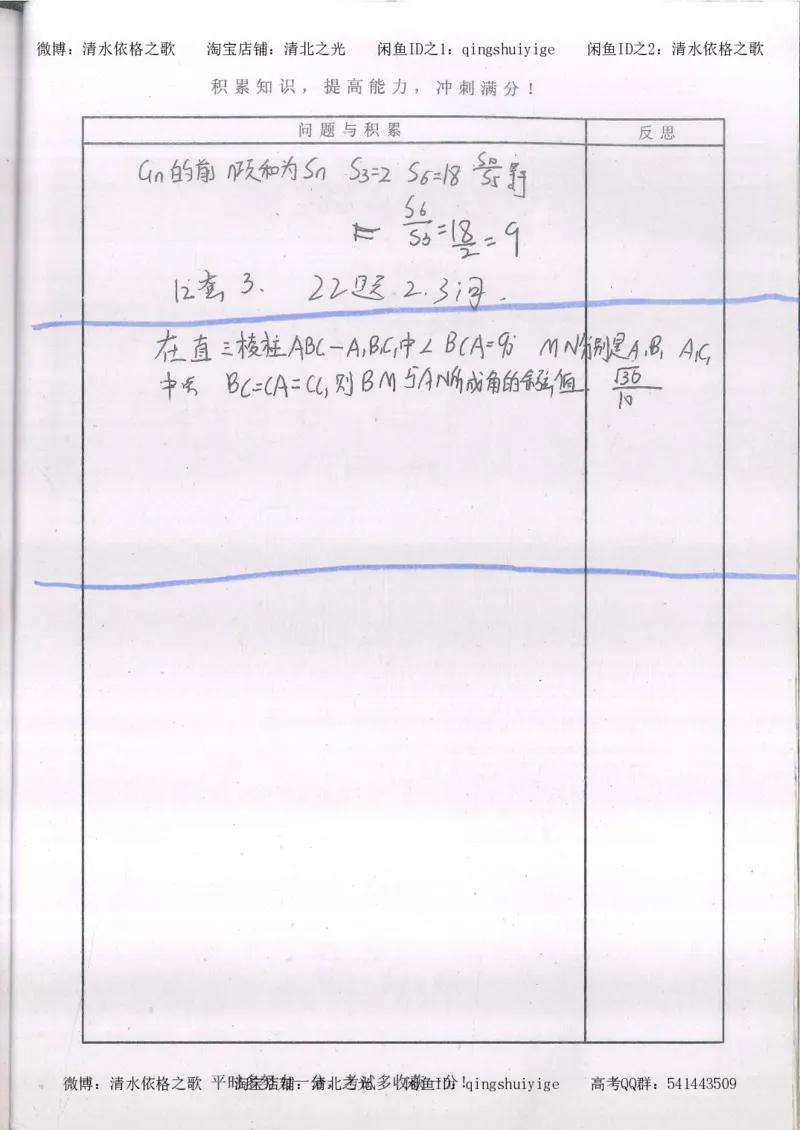 微博：清水依格之歌 淘宝店铺：清北之光 闲鱼ID之1：qingshuiyige 闲鱼ID之2：清水依格之歌
积累知识，提高能力，冲刺满分！
问题与积累 反思
an的前n项和为Sn S3=2 S6=18 S10/S5 等
S6/S3=18/2=9
12套 3. 22题 2.3问.
在直三棱柱ABC-A1B1C1中∠BCA=90° MN分别是A1B1 A1C1
中点 BC=CA=CC1则BM与AN所成角的余弦值 √30/10
微博：清水依格之歌 淘宝店铺：清北之光 闲鱼ID：qingshuiyige 高考QQ群：541443509